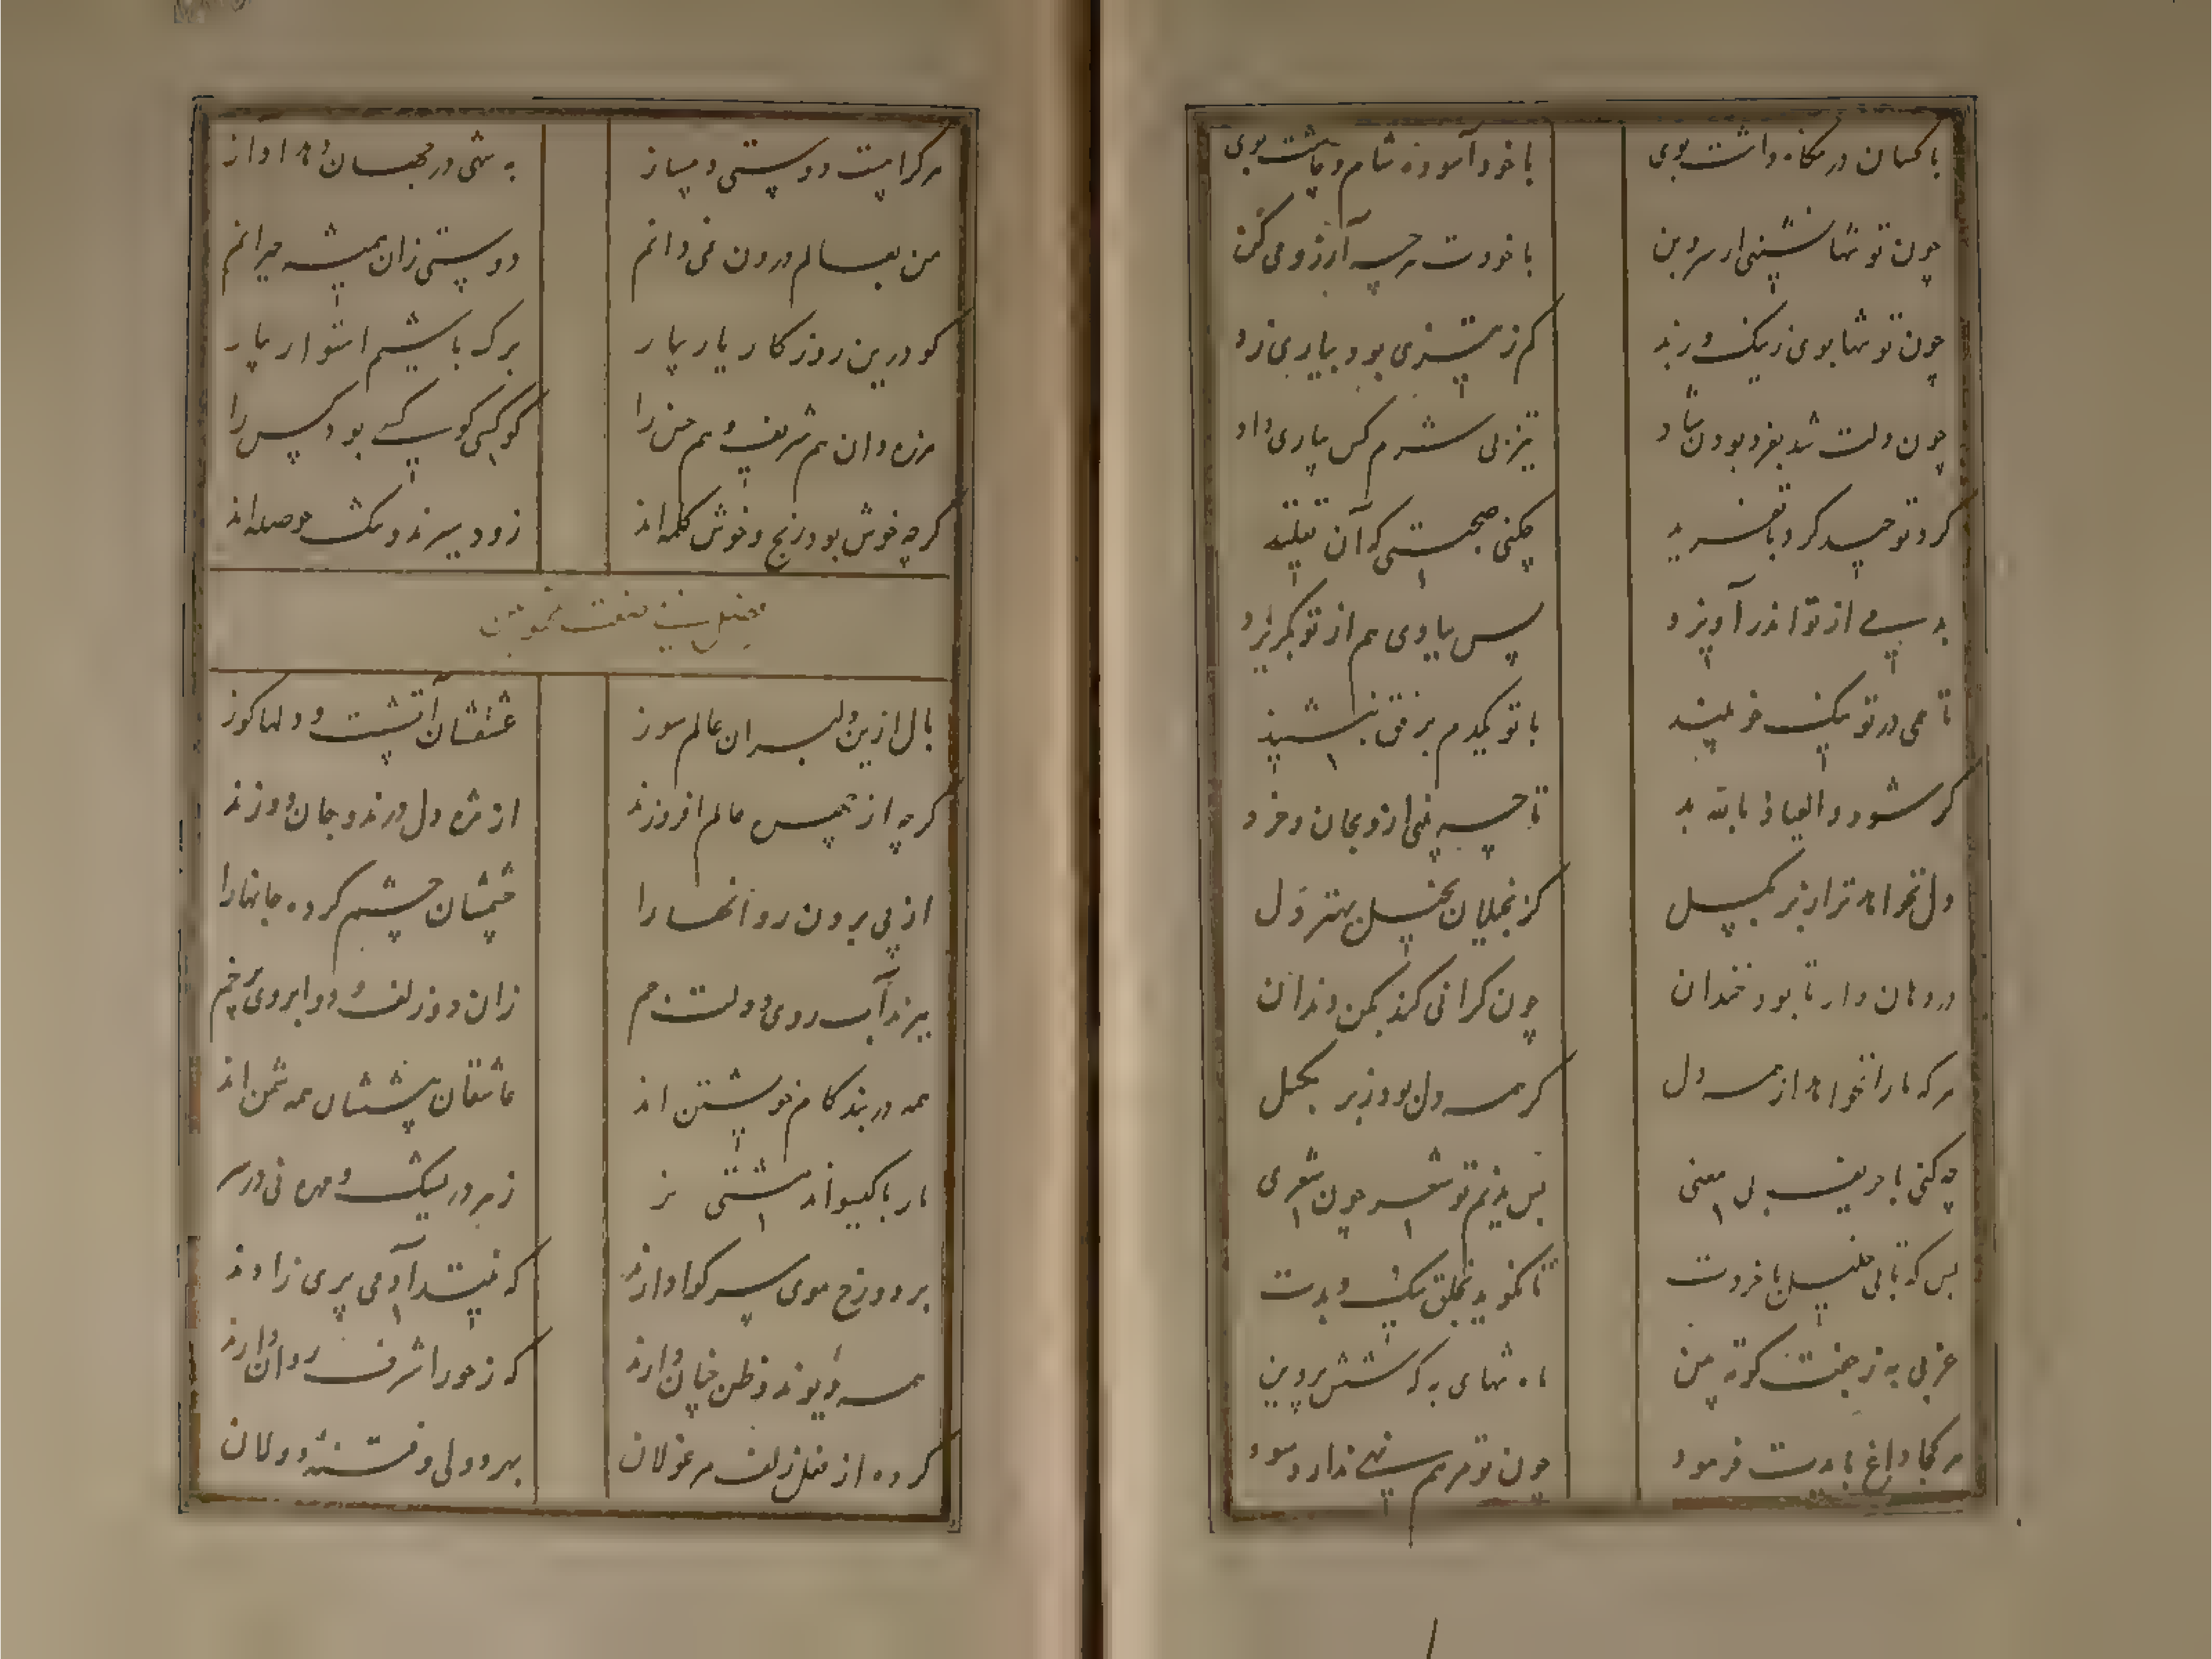 باکسان در مکاه داشت بوی
با خود آسوده شام و چاشت بوی
چون تو تنها نشینی ار سر و بن
با خودت هر چه آرزو می کن
چون تو تنها بوی ز نیک و ز بد
کم ز شیزی بود بیاری زد
چون دلت شد بفرد بودن شاد
تیزبی شرم کس یاری داد
کرد تو چید کرد با تفرید
چکنی صحبتی که آن تقلید
بد پی از تو اندر آویزد
پس بیاوی هم از تو بگریزد
تا همی در تو نیک خو بیند
با تو یکدم برفق بنشیند
کر شود والعیاذ بالله بد
تا چه بینی ازو بجان و خرد
دل نخواهد ترا ز بر بکسل
کز بخیلان بخیل بهتر دل
در دهان دار تا بود خندان
چون کرانی کند بکن دندان
هر که مارا نخواهد از همه دل
کر همه دل بود زبر بکسل
چه کنی با حریف بی معنی
بس ندیم تو شعر چون شعری
بس که تا بی خلیل با خردت
تا نکوید بخلق نیک و بدت
عزبی به ز جفت کوته بین
ماه تنهای به که شش پروین
هر کجا داغ بایدت فرمود
چون تو مرهم نهی ندارد سود
هر کرا نیست دوستی دمساز
به شبی در مجسان دهد آواز
من بعالم درون نمی دانم
دوستی زان همیشه حیرانم
کو درین روزکار یار یار
بر که باشیم استوار یار
مزه دان هم شریف و هم خس را
کو کسی کو کسی بود کس را
کرچه خوش بود رنج و خوش کلمه اند
زود سیرند و تنک حوصله اند
بال ازین دلبران عالم سوز
عشقشان آتشست و دلها کوز
کرچه از چهره عالم افروزند
از مژه دل درند و جان دوزند
از پی بردن روانها را
خشمشان چشم کرده جانها را
ببرند آب روی دولت هم
زان دو زلف و دو ابروی پر خم
همه در بند کام خویشتن اند
عاشقان پیششان همه شمن اند
مار باکیسواند مشتی نر
زهر در لیک و مهره نی در سر
بر دو رخ موی سر کوا دارند
که نیند آدمی پری زادند
همه دیوند و ظن چنان دارند
که ز حورا شرف روان دارند
کرده از فعل زلف مرغولان
بهر دولی و فتنه دولان